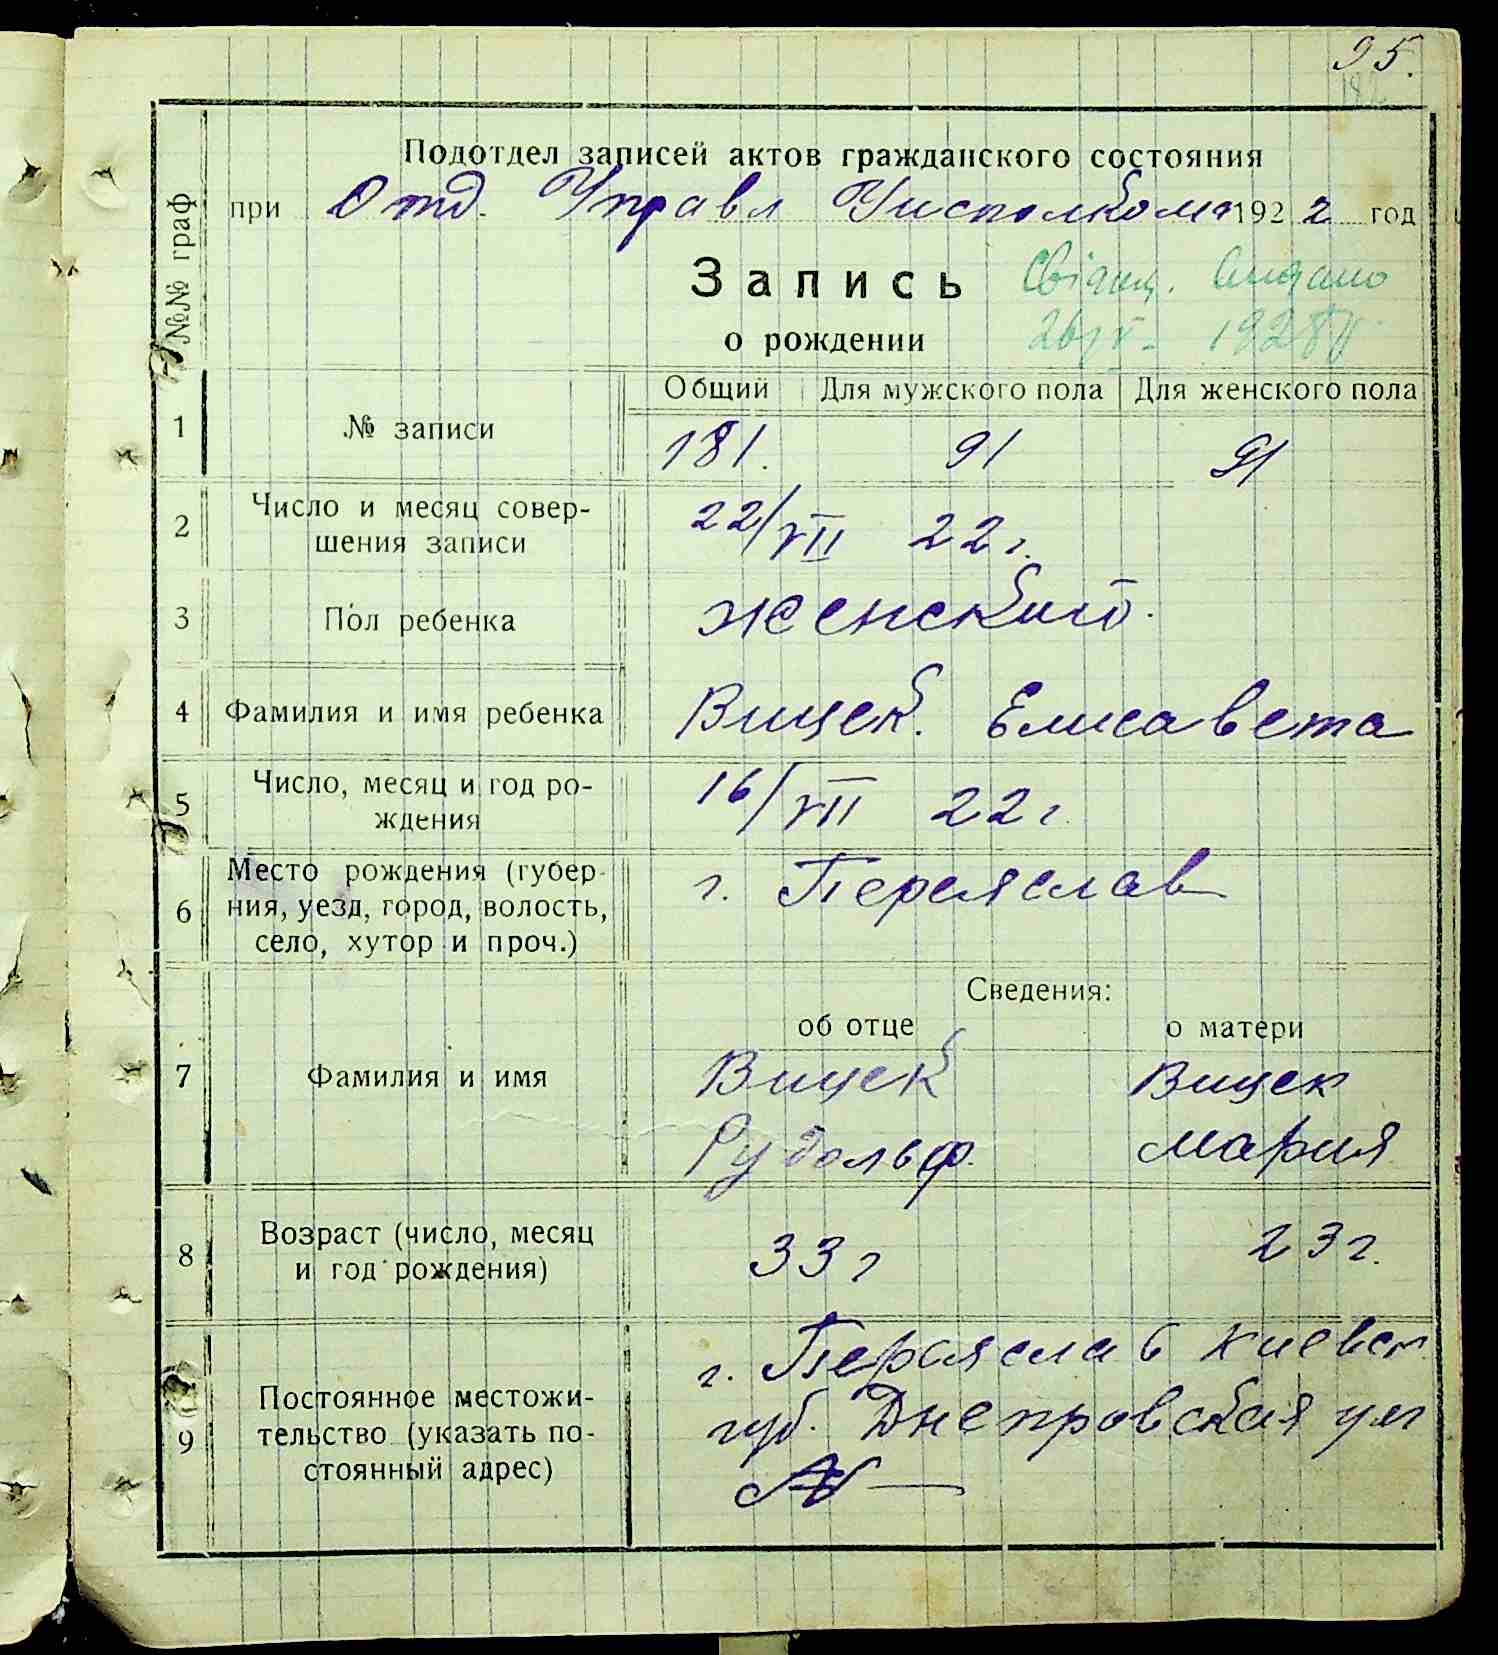 95.
Подотдел записей актов гражданского состояния
при Отд. Управл Уисполкома 1922 год
№№ граф
Запись
о рождении
Свідоц. видано
26/V - 1928 р.
Общий Для мужского пола Для женского пола
1 № записи 181. 91 91
2 Число и месяц совер-
шения записи
22/VII 22 г.
3 Пол ребенка женский.
4 Фамилия и имя ребенка Вицек. Елисавета
5 Число, месяц и год ро-
ждения
16/VII 22 г.
6 Место рождения (губер-
ния, уезд, город, волость,
село, хутор и проч.)
г. Переяслав
Сведения:
об отце о матери
7 Фамилия и имя
Вицек Вицек
Рудольф. Мария
8 Возраст (число, месяц
и год рождения)
33 г 23 г.
9 Постоянное местожи-
тельство (указать по-
стоянный адрес)
г. Переяслав Киевск
губ. Днепровская ул
№ —